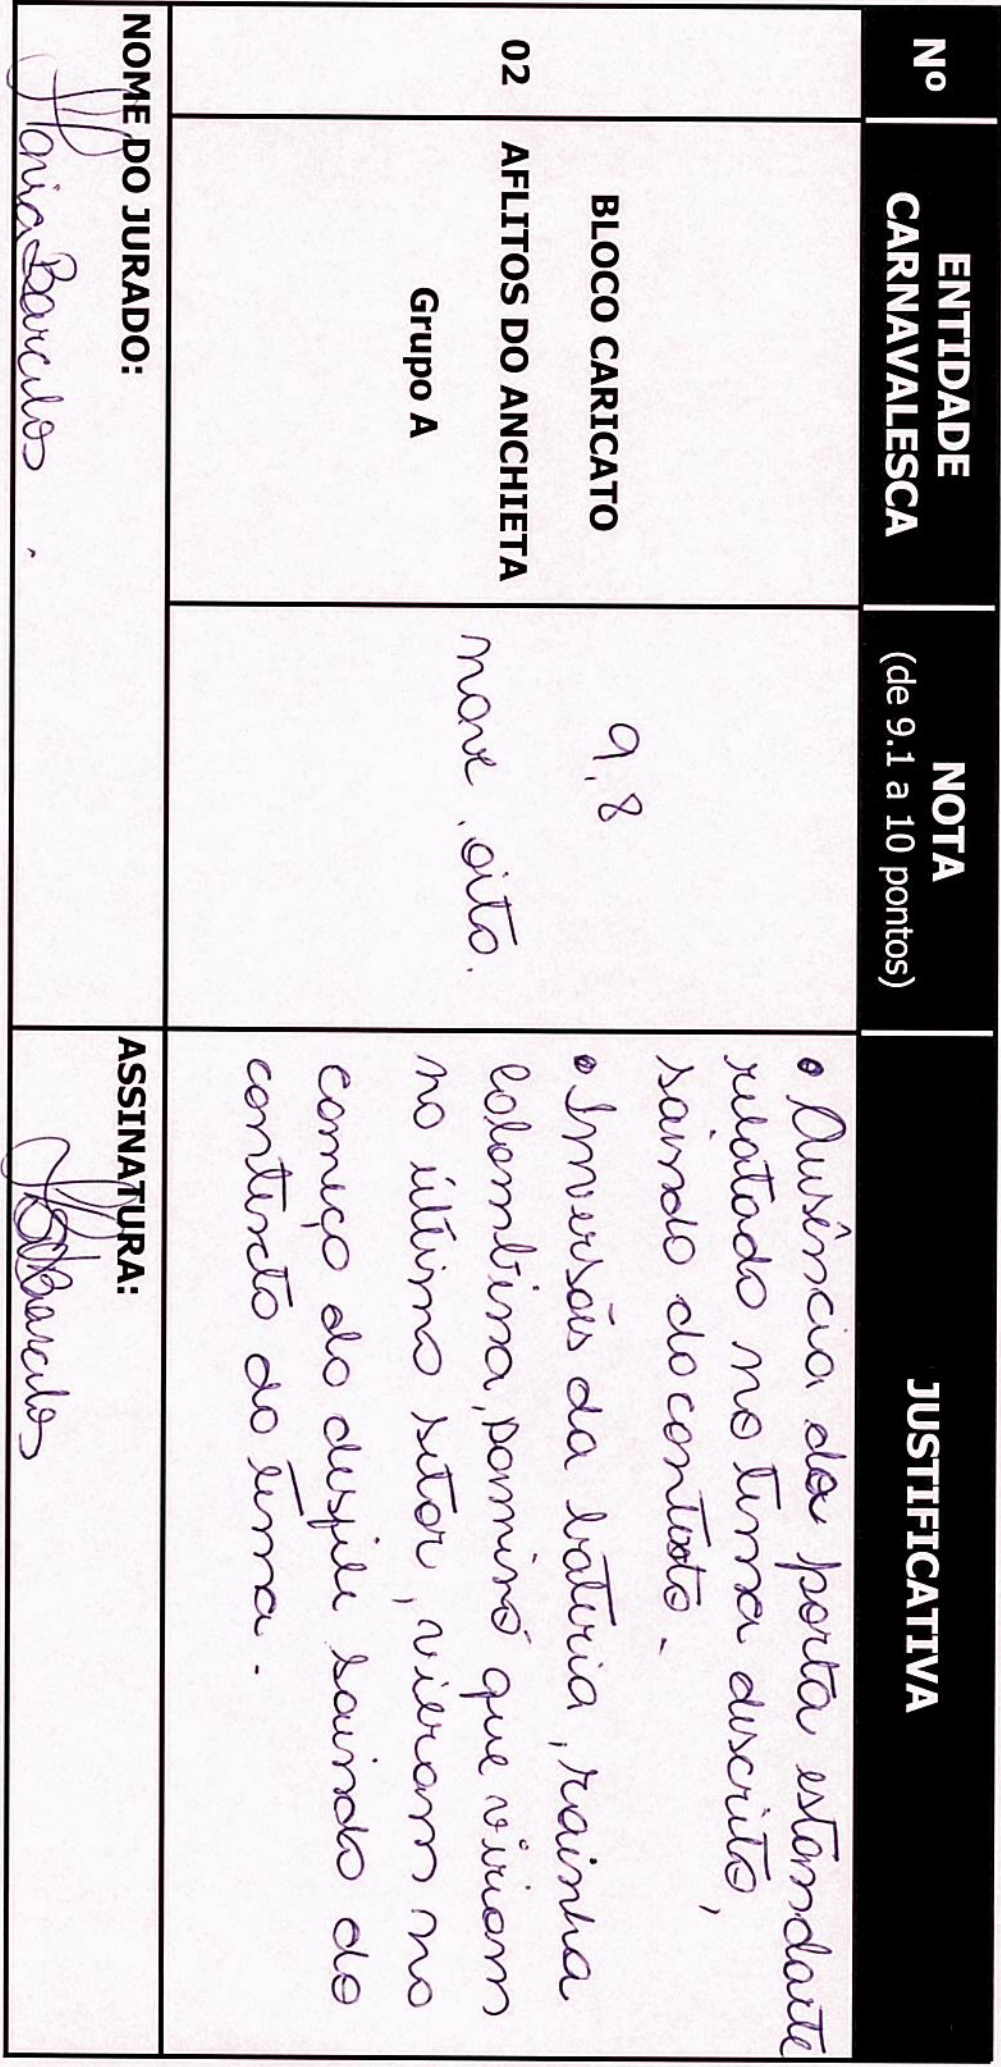 Nº
ENTIDADE
CARNAVALESCA
NOTA
(de 9.1 a 10 pontos)
JUSTIFICATIVA
02
BLOCO CARICATO
AFLITOS DO ANCHIETA
Grupo A
9,8
nove, oito.
• Ausência da porta estandarte
relatado no tema descrito,
saindo do contexto.
• Inversões da bateria, rainha
Colombina, Dominó que viriam
no último setor, vieram no
começo do desfile saindo do
contexto do tema.
NOME DO JURADO:
Barcelos.
ASSINATURA:
Barcelos